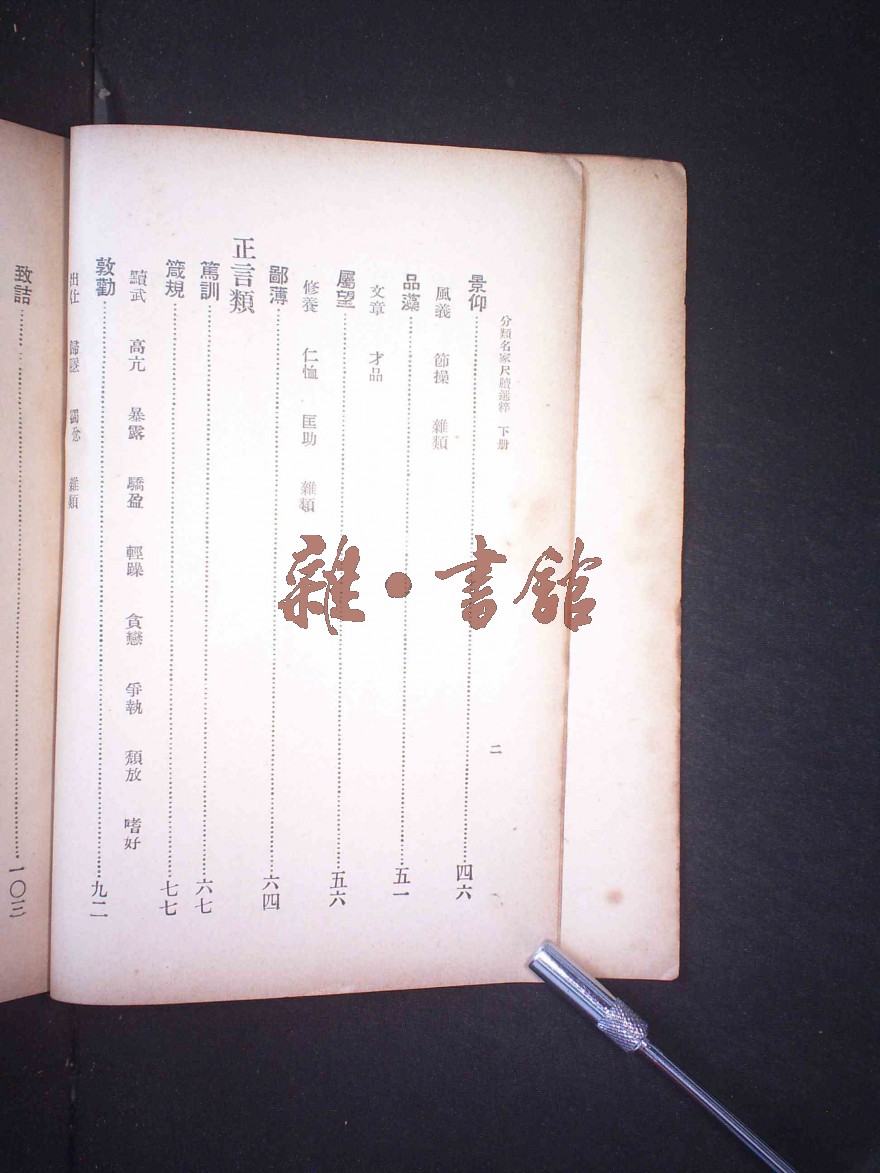 分類名家尺牘選粹 下册
二
景仰⋯⋯四六
風義 節操 雜類
品藻⋯⋯五一
文章 才品
屬望⋯⋯五六
修養 仁恤 匡助 雜類
鄙薄⋯⋯六四
正言類
篤訓⋯⋯六七
箴規⋯⋯七七
黷武 高亢 暴露 驕盈 輕躁 貪戀 爭執 頹放 嗜好
敦勸⋯⋯九二
出仕 歸隱 蠲忿 雜類
致詰⋯⋯一〇三
雜·書館